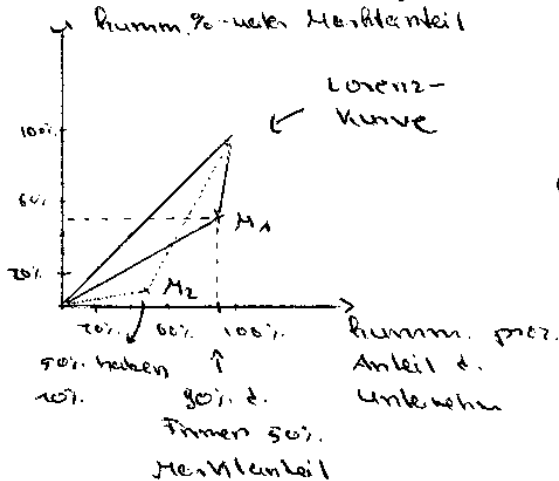 kumm. %-ualer Marktanteil
Lorenz-
Kurve
100%
60%
M1
20%
M2
20% 60% 100%
kumm. proz.
Anteil d.
Unternehm
50% haben
10%
90% d.
Firmen 50%
Marktanteil